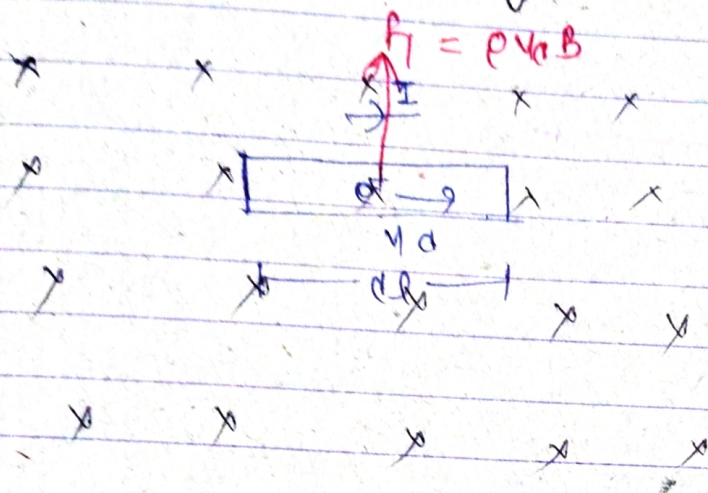 F₁ = eVdB
I
e⁻ →
Vd
dl